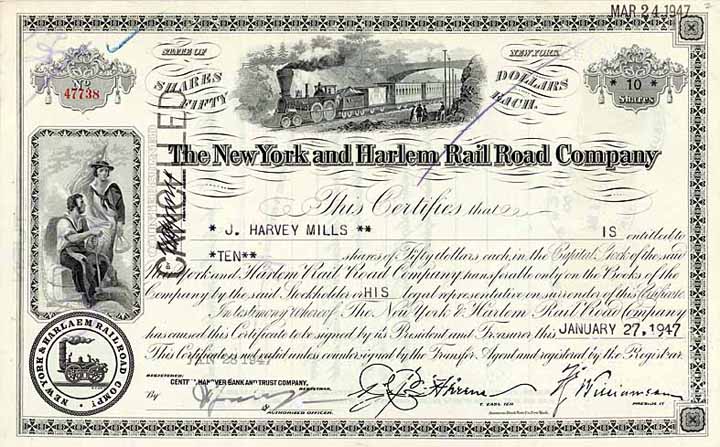 MAR 24 1947
STATE OF NEW YORK
No 47738
SHARES FIFTY DOLLARS EACH.
* 10 *
SHARES
CANCELLED
The New York and Harlem Rail Road Company
This Certifies that
* J. HARVEY MILLS ** IS entitled to
*TEN** shares of Fifty dollars each, in the Capital Stock of the said
New York and Harlem Rail Road Company transferable only on the Books of the
Company by the said Stockholder or HIS legal representative on surrender of this Certificate
In testimony whereof, The New York & Harlem Rail Road Company
has caused this Certificate to be signed by its President and Treasurer this JANUARY 27, 1947
This Certificate is not valid unless countersigned by the Transfer Agent and registered by the Registrar.
NEW YORK & HARLAEM RAILROAD COMPY
REGISTERED:
BANK AND TRUST COMPANY,
REGISTRAR,
By
AUTHORISED OFFICER.
Williamson